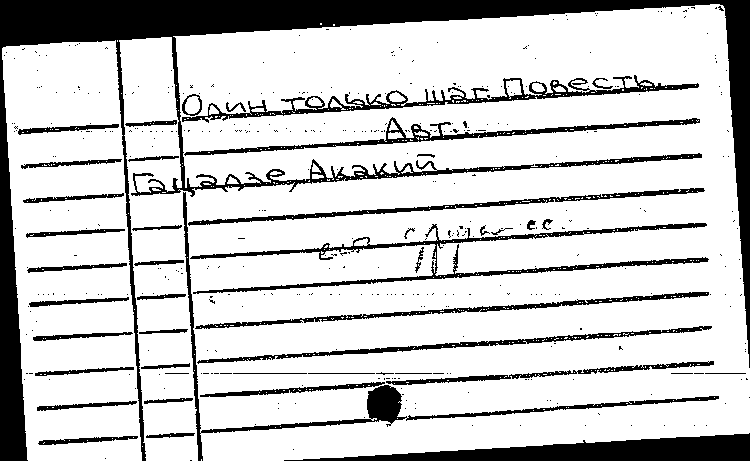 Один только шаг. Повесть.
Авт.:
Гацадзе, Акакий.